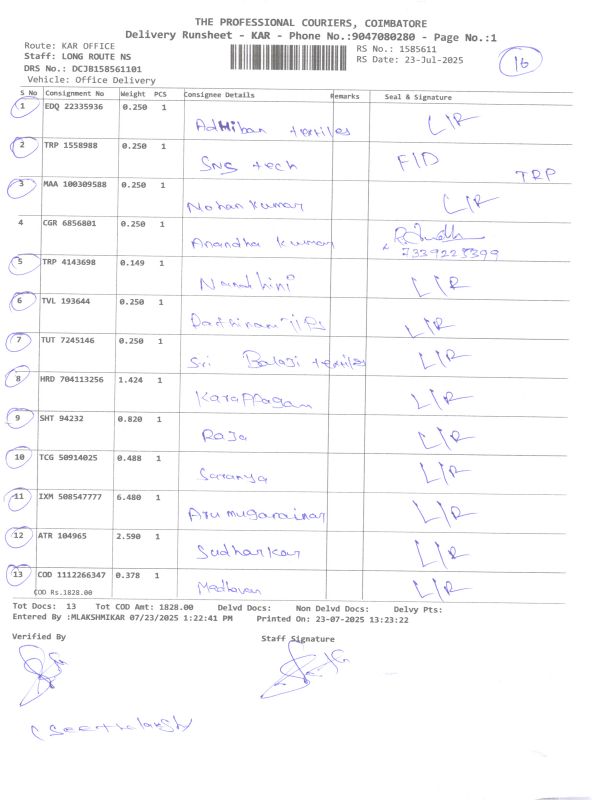 THE PROFESSIONAL COURIERS, COIMBATORE
Delivery Runsheet - KAR - Phone No.:9047080280 - Page No.:1
Route: KAR OFFICE RS No.: 1585611
Staff: LONG ROUTE NS RS Date: 23-Jul-2025 16
DRS No.: DCJB158561101
Vehicle: Office Delivery
S No Consignment No Weight PCS Consignee Details Remarks Seal & Signature
1 EDQ 22335936 0.250 1 Adhiban textiles L/R
2 TRP 1558988 0.250 1 SNS tech FID TRP
3 MAA 100309588 0.250 1 Mohan kumar L/R
4 CGR 6856801 0.250 1 Anandha kumar
7339225399
5 TRP 4143698 0.149 1 Nandhini L/R
6 TVL 193644 0.250 1 L/R
7 TUT 7245146 0.250 1 Sri Balaji textiles L/R
8 HRD 704113256 1.424 1 Karuppagam L/R
9 SHT 94232 0.820 1 Raja L/R
10 TCG 50914025 0.488 1 Saranya L/R
11 IXM 508547777 6.480 1 Arumugarainar L/R
12 ATR 104965 2.590 1 Sudharkar L/R
13 COD 1112266347 0.378 1 Madhavan L/R
COD Rs.1828.00
Tot Docs: 13 Tot COD Amt: 1828.00 Delvd Docs: Non Delvd Docs: Delvy Pts:
Entered By :MLAKSHMIKAR 07/23/2025 1:22:41 PM Printed On: 23-07-2025 13:23:22
Verified By Staff Signature